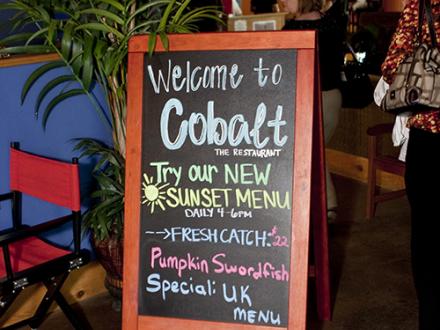 Welcome to
Cobalt
THE RESTAURANT
Try our NEW
SUNSET MENU
DAILY 4-6pm
-->FRESH CATCH: $22
Pumpkin Swordfish
Special: UK
MENU